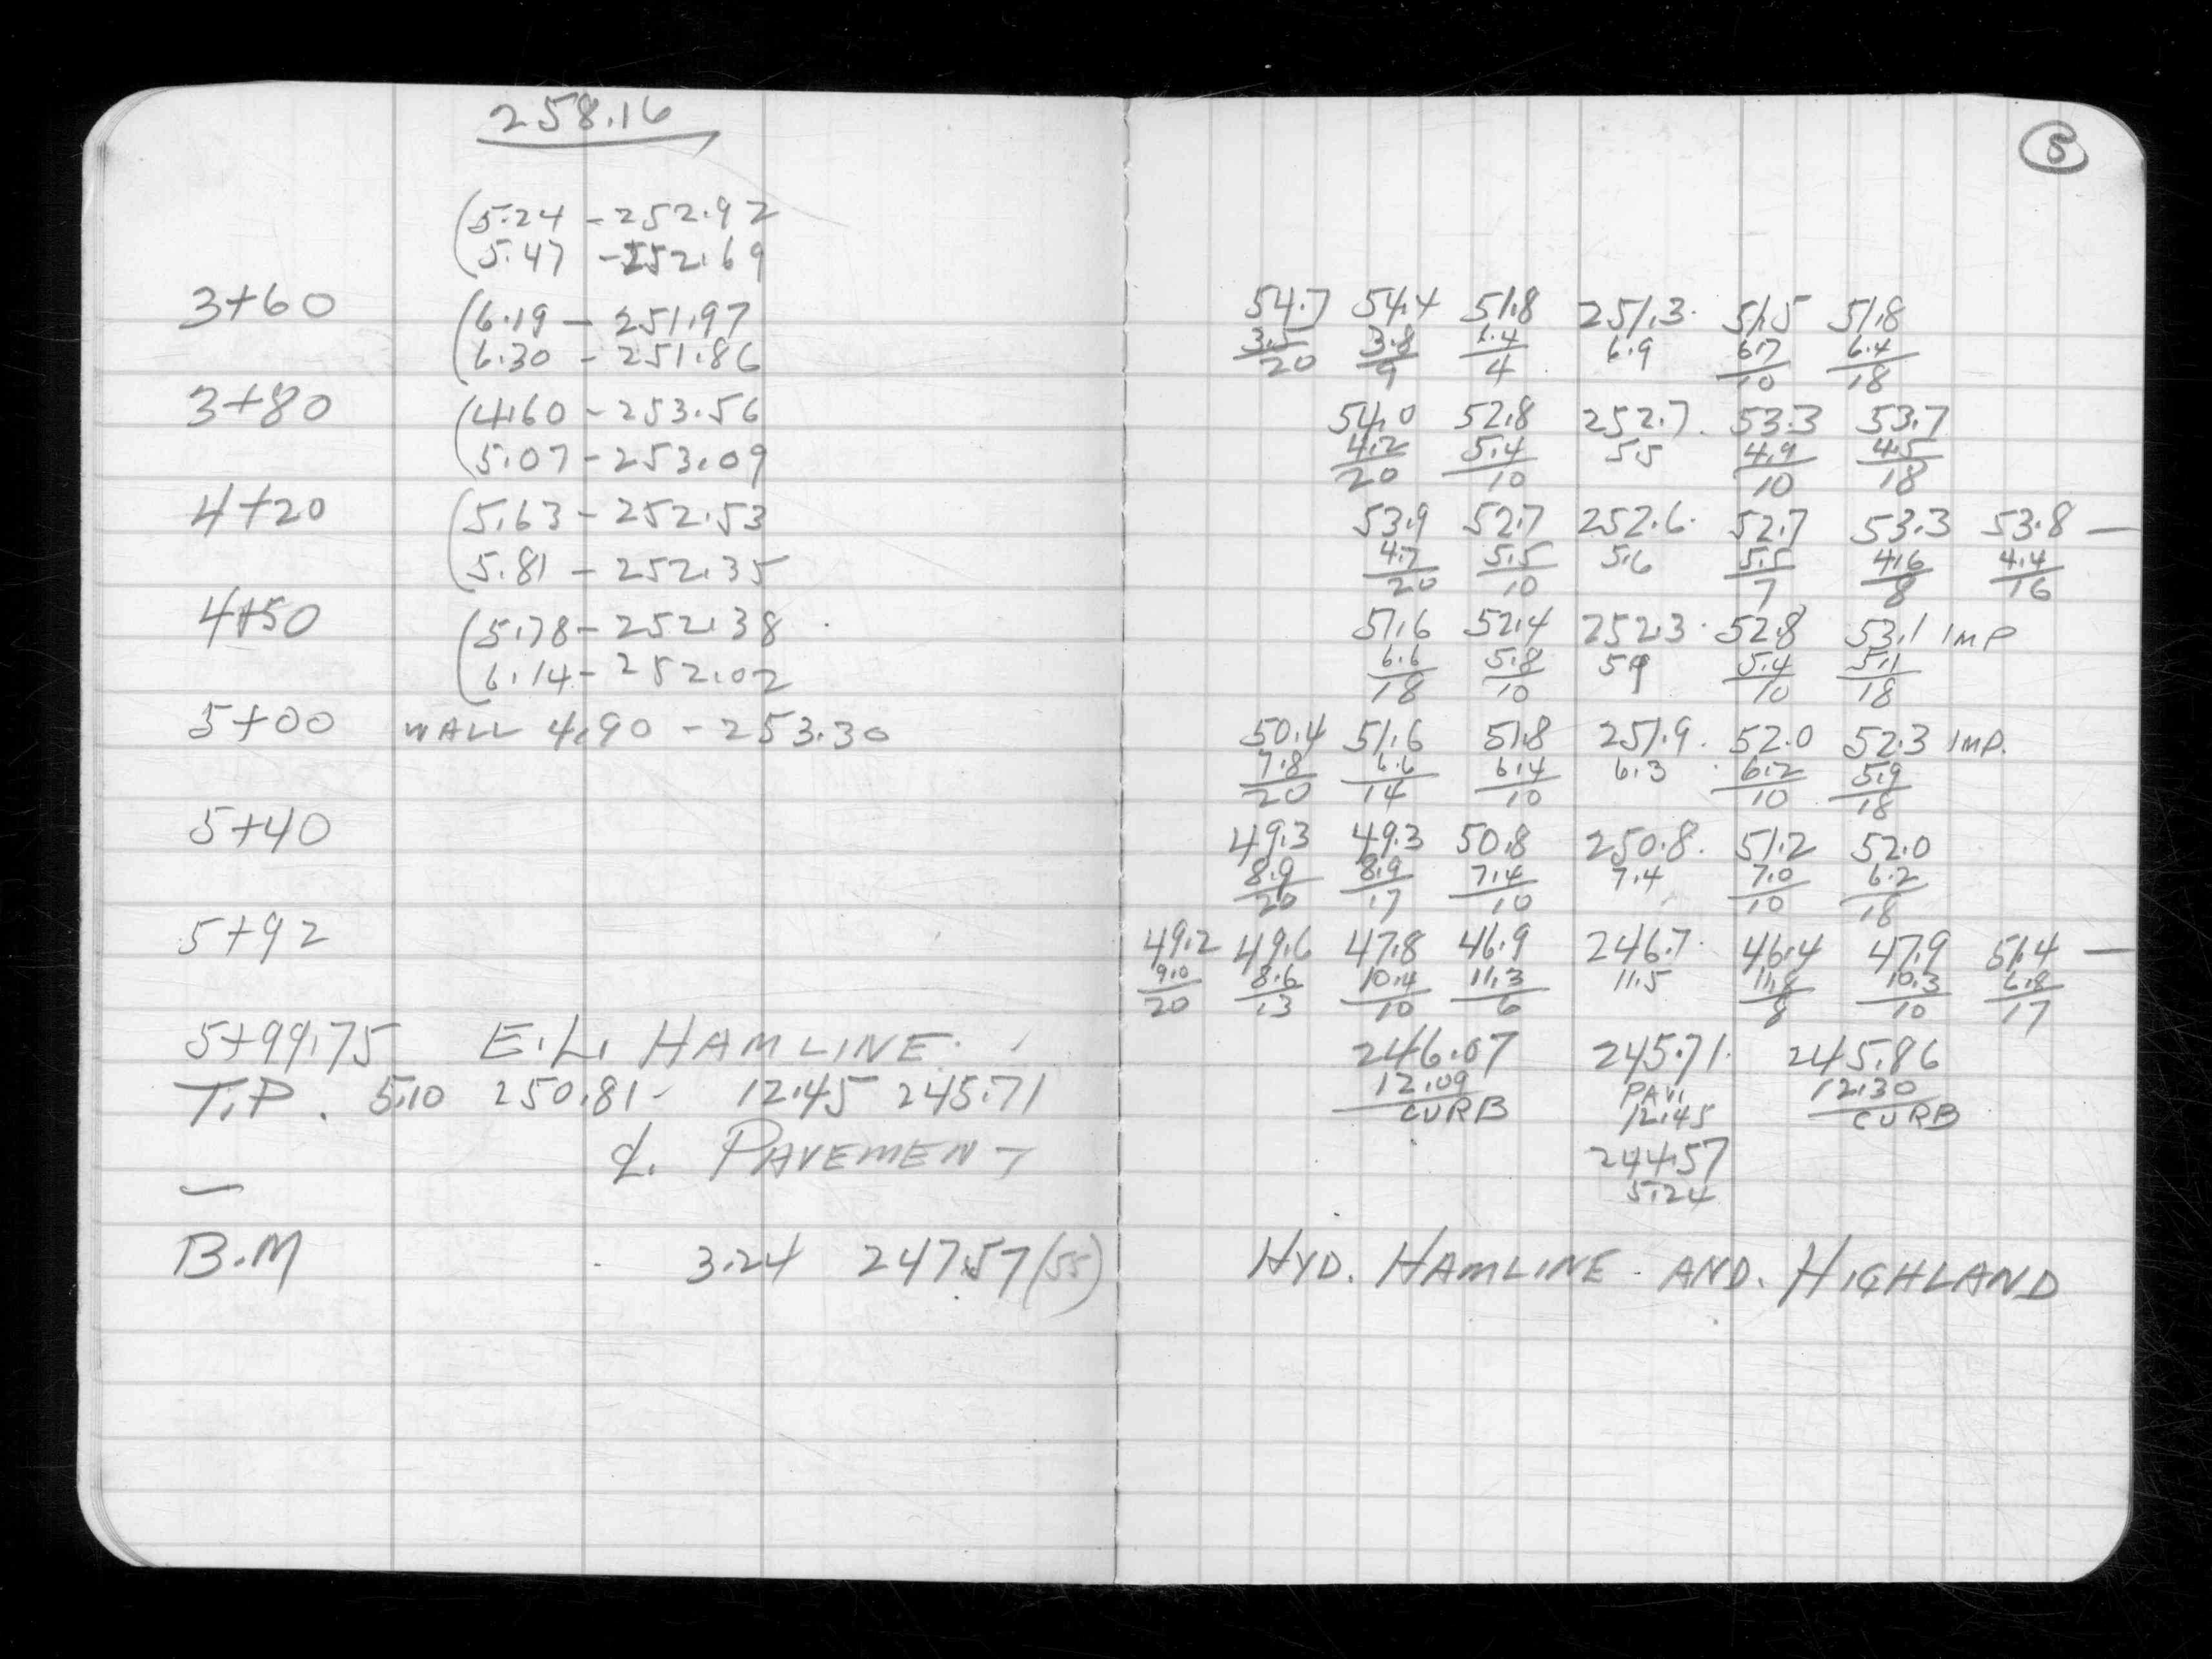 258.16
5
(5.24 - 252.92
(5.47 - 252.69
3+60 (6.19 - 251.97 54.7 54.4 51.8 251.3 51.5 51.8
(6.30 - 251.86 3.5 3.8 6.4 6.9 6.7 6.4
20 9 4 10 18
3+80 (4.60 - 253.56 54.0 52.8 252.7 53.3 53.7
(5.07 - 253.09 4.2 5.4 5.5 4.9 4.5
20 10 10 18
4+20 (5.63 - 252.53 53.9 52.7 252.6 52.7 53.3 53.8 —
(5.81 - 252.35 4.7 5.5 5.6 5.5 4.6 4.4
20 10 7 8 16
4+50 (5.78 - 252.38 51.6 52.4 252.3 52.8 53.1 IMP
(6.14 - 252.02 6.6 5.8 5.9 5.4 5.1
18 10 10 18
5+00 WALL 4.90 - 253.30 50.4 51.6 51.8 251.9 52.0 52.3 IMP.
7.8 6.6 6.4 6.3 6.2 5.9
20 14 10 10 18
5+40 49.3 49.3 50.8 250.8 51.2 52.0
8.9 8.9 7.4 7.4 7.0 6.2
20 17 10 10 18
5+92 49.2 49.6 47.8 46.9 246.7 46.4 47.9 51.4 —
9.0 8.6 10.4 11.3 11.5 11.8 10.3 6.8
20 13 10 6 8 10 17
5+99.75 E.L. HAMLINE 246.07 245.71 245.86
T.P. 5.10 250.81 - 12.45 245.71 12.09 PAV. 12.30
CURB 12.45 CURB
℄. PAVEMENT 244.57
— 5.24
B.M 3.24 247.57 (55) HYD. HAMLINE AND. HIGHLAND